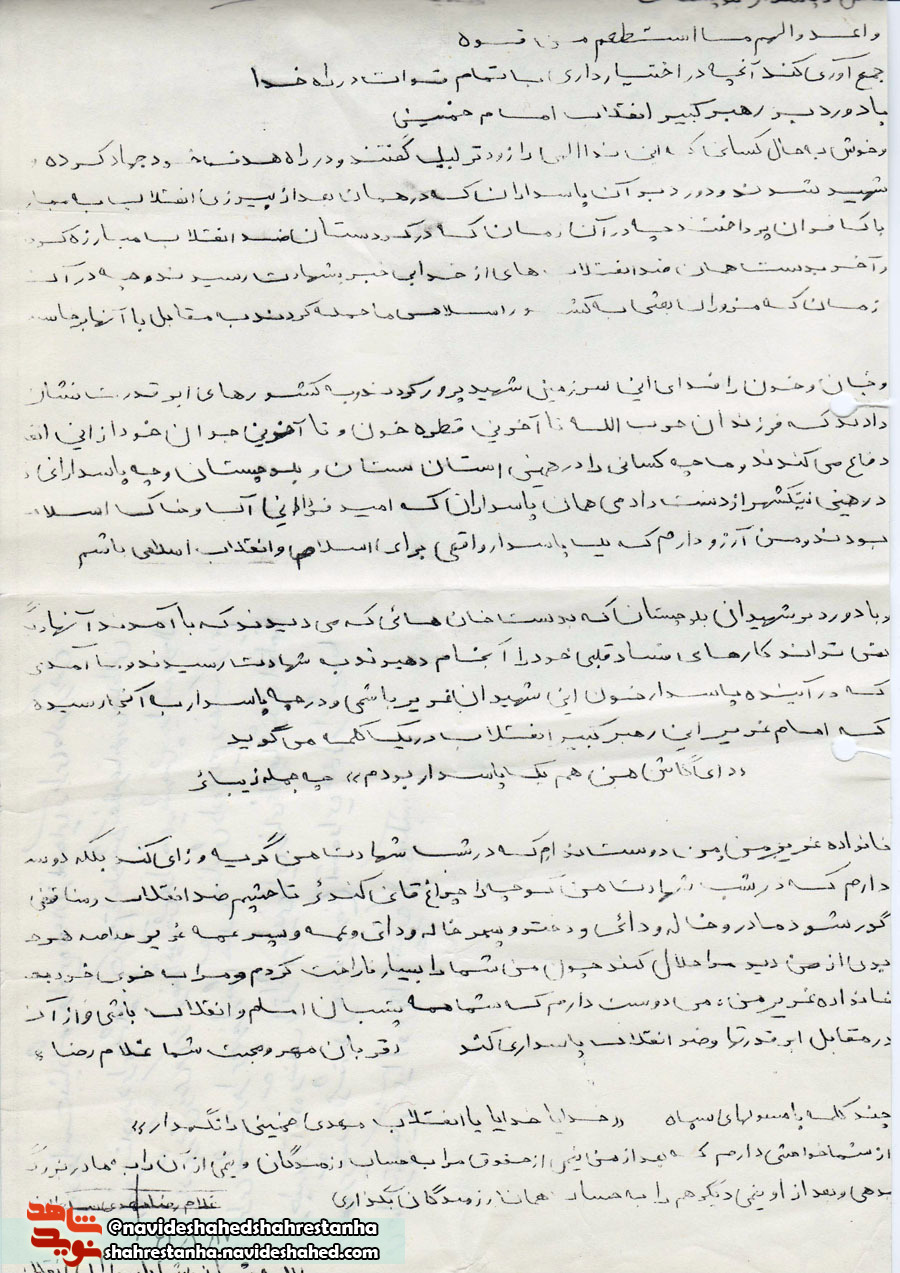 واعدوالهم مااستطعم من قوه
جمع آوری کند آنچه در اختیار داری با تمام قوات در راه خدا
با درود بر رهبر کبیر انقلاب امام خمینی
و خوش به حال کسانی که این ندا الهی را زودتر لبیک گفتند و در راه هدف خود جهاد کرده و
شهید شدند و درود بر آن پاسداران که در همان بعد از پیروزی انقلاب به
با کافران پرداخت چه در آن زمان که در کردستان ضد انقلاب مبارزه
و آخر بدست همان ضد انقلاب های از خدابی خبر بشهادت رسیدند و چه در آن
زمان که مزوران بعثی به کشور اسلامی ما حمله کردند به مقابل با آنها
و جان و خون را فدای این سرزمین شهید پرور کردند و به کشورهای ابر قدرت نشان
دادند که فرزندان حزب الله تا آخرین قطره خون و تا آخرین جوان خود از این
دفاع می کنند و ما چه کسانی را در همین استان سستان و بلوچستان و چه پاسدارانی
در همین نیکشهر از دست دادمی همان پاسداران که امید آب و خاک اسلام
بودند و من آرزو دارم که یک پاسدار واقعی برای اسلام و انقلاب اسلامی باشم
و با درود بر شهیدان بلوچستان که بدست خان هائی که می دیدند که با آمدند آنها
نمی توانند کارهای قبلی خود را آنجام دهیوند به شهادت رسیدند و با آمدی
که در آینده پاسدار خون این شهیدان عزیز باشمی و درجه پاسدار به آنجا رسیده
که امام عزیز این رهبر کبیر انقلاب در یک کلمه می گوید
«دای کاش من هم یک پاسدار بودم» چه جمله زیبائر
خانواده عزیز من من دوست ندارم که در شب شهادت من گریه و زای کند بلکه دوست
دارم که در شب شهادت من کوچه را چراغ قانی کندئر تا چشم ضد انقلاب و منافقی
گور شود مادر و خاله و دائی و دختر و پسر خاله و دائی و عمه و پسر عمه عزیز خلاصه هر
بدی از من دید مرا حلال کند چول من شما را بسیار ناراحت کردم و مرا به خوبی خود
خانواده عزیز من می دوست دارم که شما همه پشتبان اسلام و انقلاب باشی و از آن
در مقابل ابر قدرتها و ضد انقلاب پاسداری کند قربان مهر و محبت شما غلام رضا
چند کلمه با مسولهای سپاه «خدایا خدایا یا انقلاب مهدی خمینی را نگهدار»
از شما خواهشی دارم که بعد از من نیمی از حقوق مرا به حساب رزمندگان و نیمی از آن را به مادر بزرگ
بدهی و بعد از او نیمی دیگر هم را به حساب همان رزمندگان بگذاری
غلام رضا
شاهد
نوید
@navideshahedshahrestanha
shahrestanha.navideshahed.com